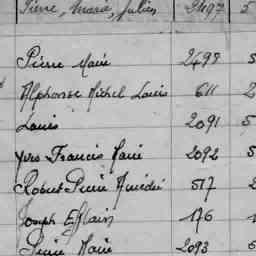 Pierre, Marie, Julien 2497 5
Pierre Marie 2498 5
Alphonse Michel Louis 611 2
Louis 2091 5
Yves Francis Marie 2092 5
Robert Pierre Amédée 517 2
Joseph Efflam 176 1
Pierre Marie 2093 5